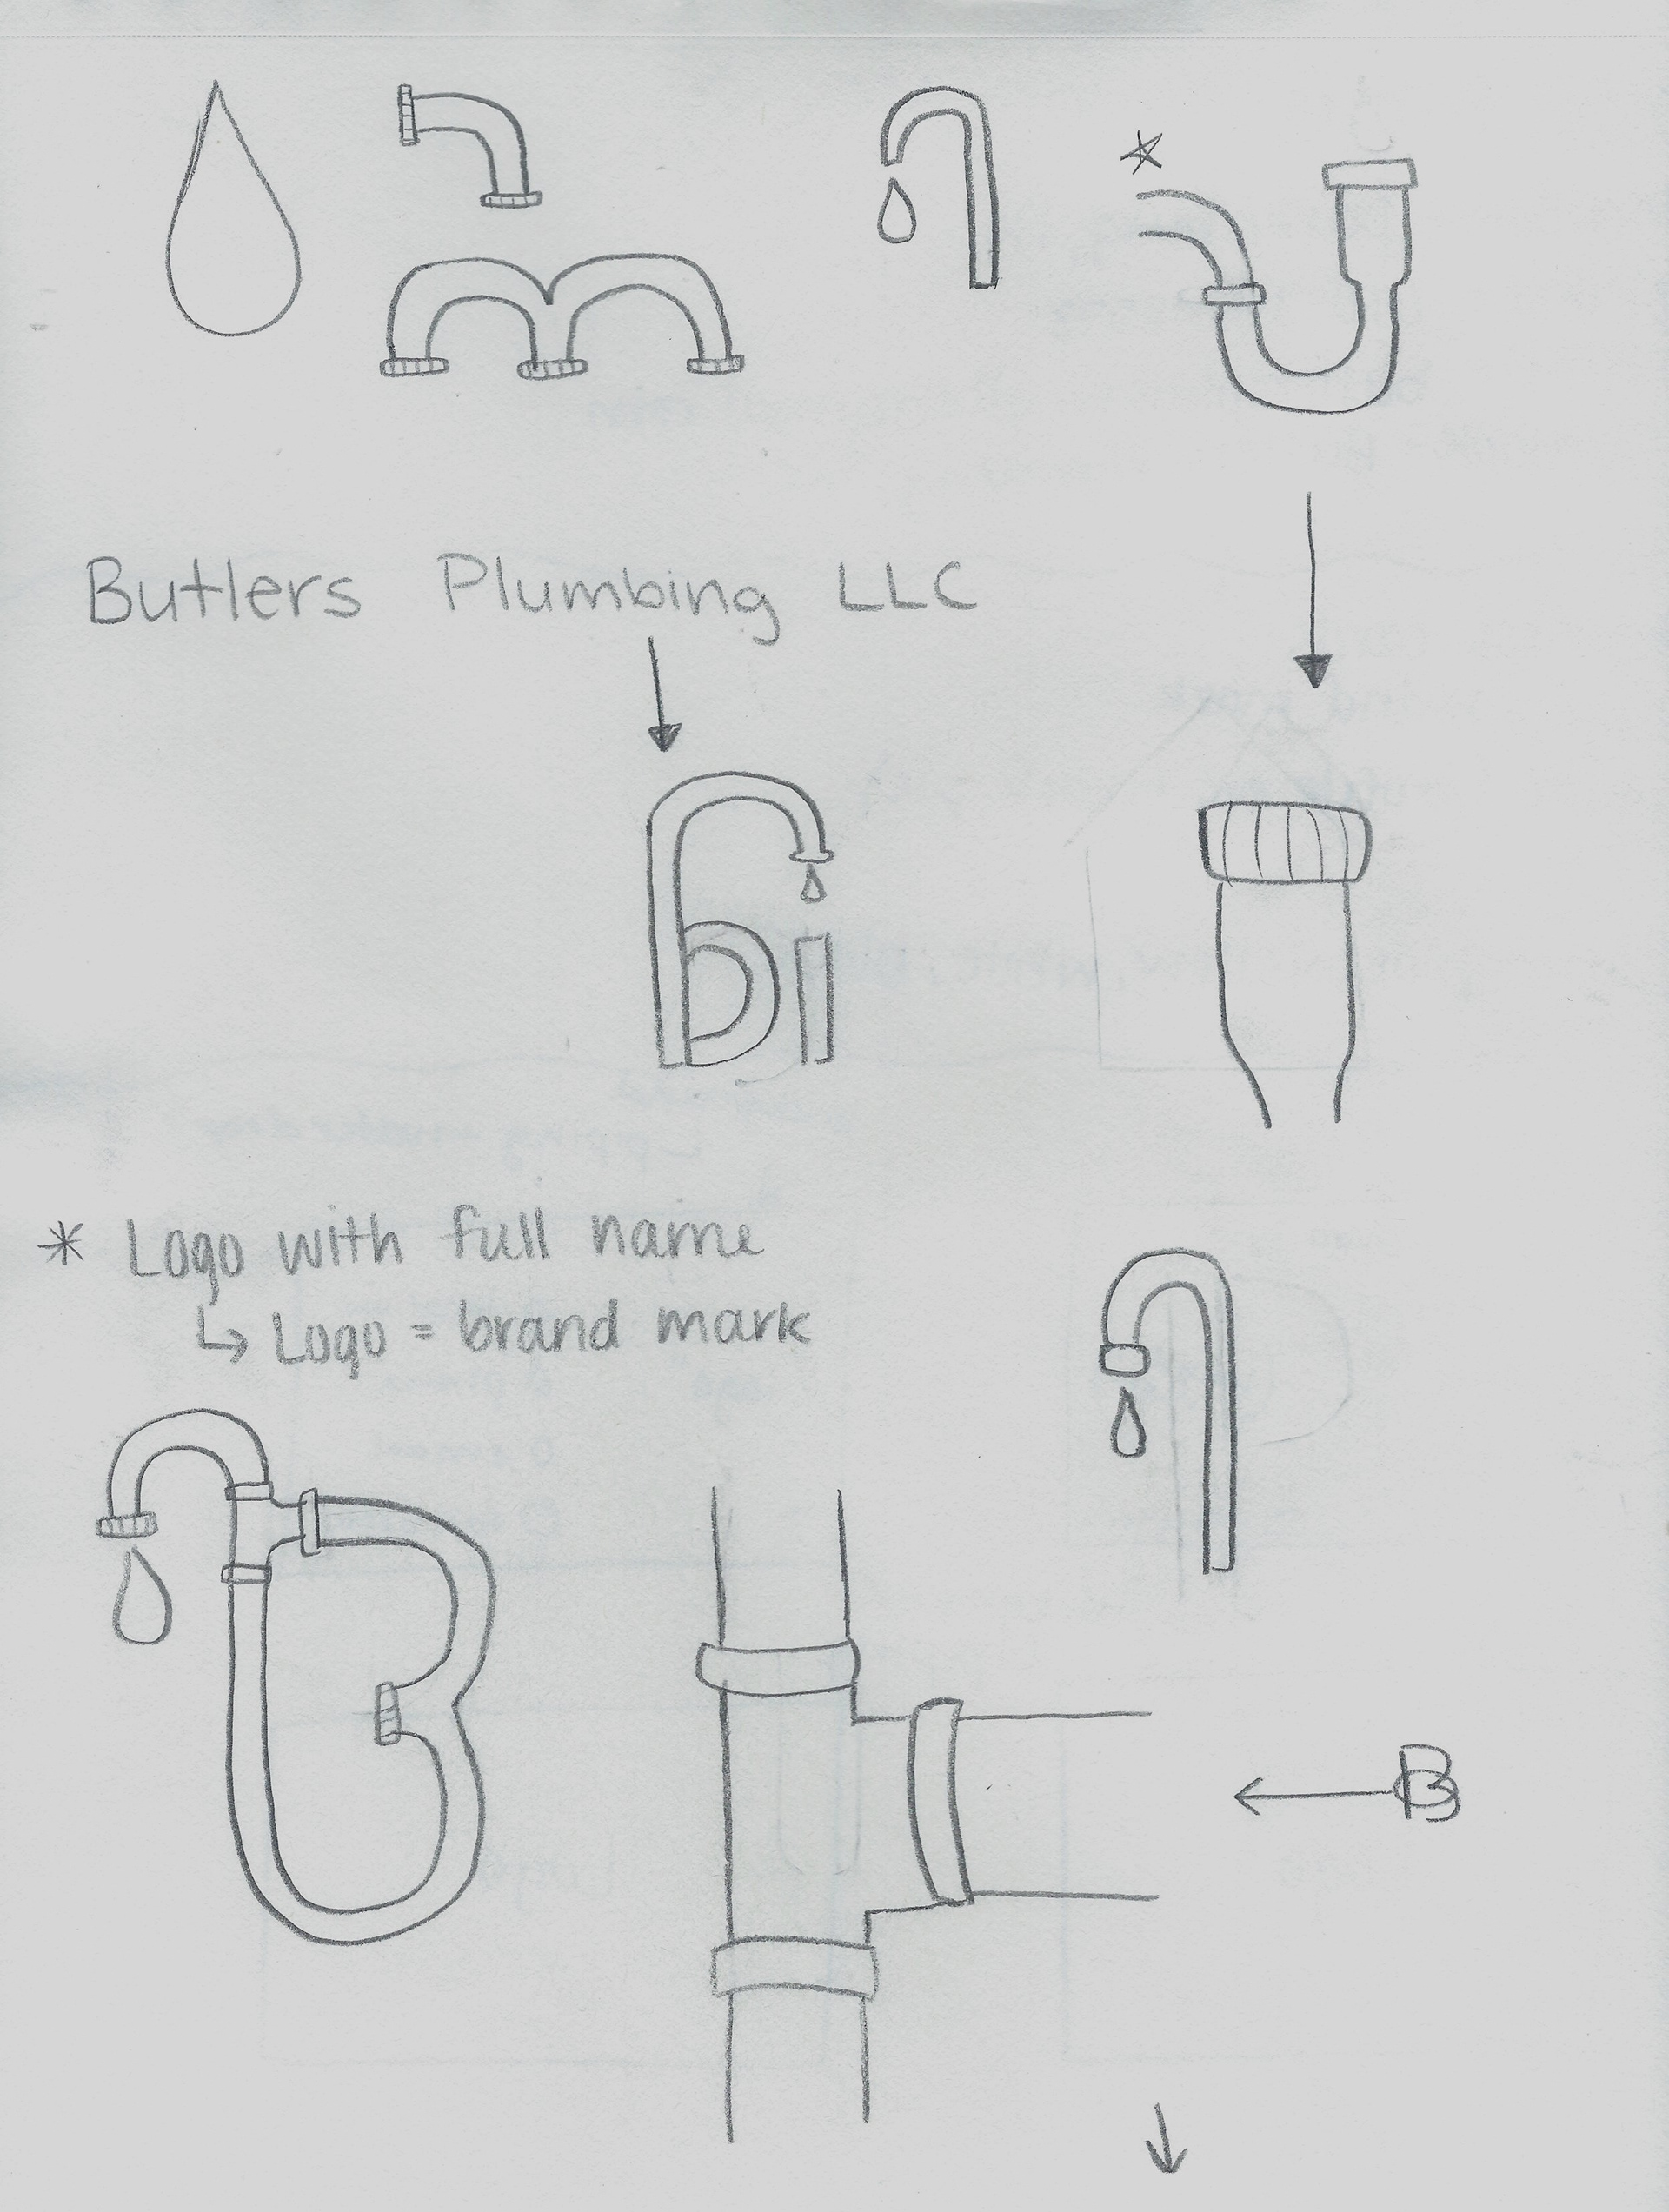 Butlers Plumbing LLC
bi
* Logo with full name
↳ Logo = brand mark
B